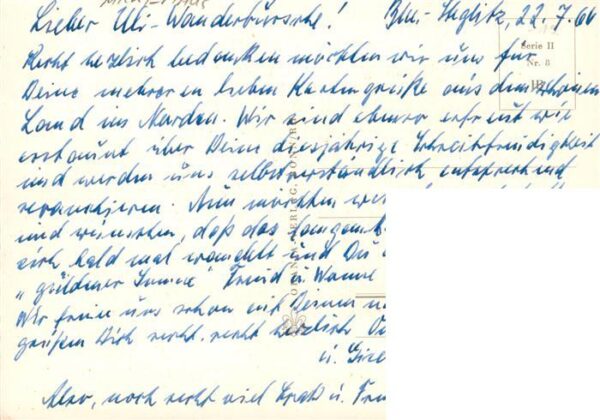 Lieber Uli-Wanderbursche! Bln.-Steglitz, 22.7.60
Serie II
Nr. 8
Recht herzlich bedanken möchten wir uns für
Deine mehreren lieben Kartengrüße aus dem schönen
Land im Norden. Wir sind ebenso erfreut wie
erstaunt über Deine diesjährige Schreibfreudigkeit
und werden uns selbstverständlich entsprechend
revanchieren. Nun möchten wir
und wünschen, daß das
sich bald mal wandelt und Du
"goldener Sonne" Freud u. Wonne
Wir freuen uns schon auf Deinen
grüßen Dich recht, recht herzlich
u.
Also, noch recht viel Spaß u.